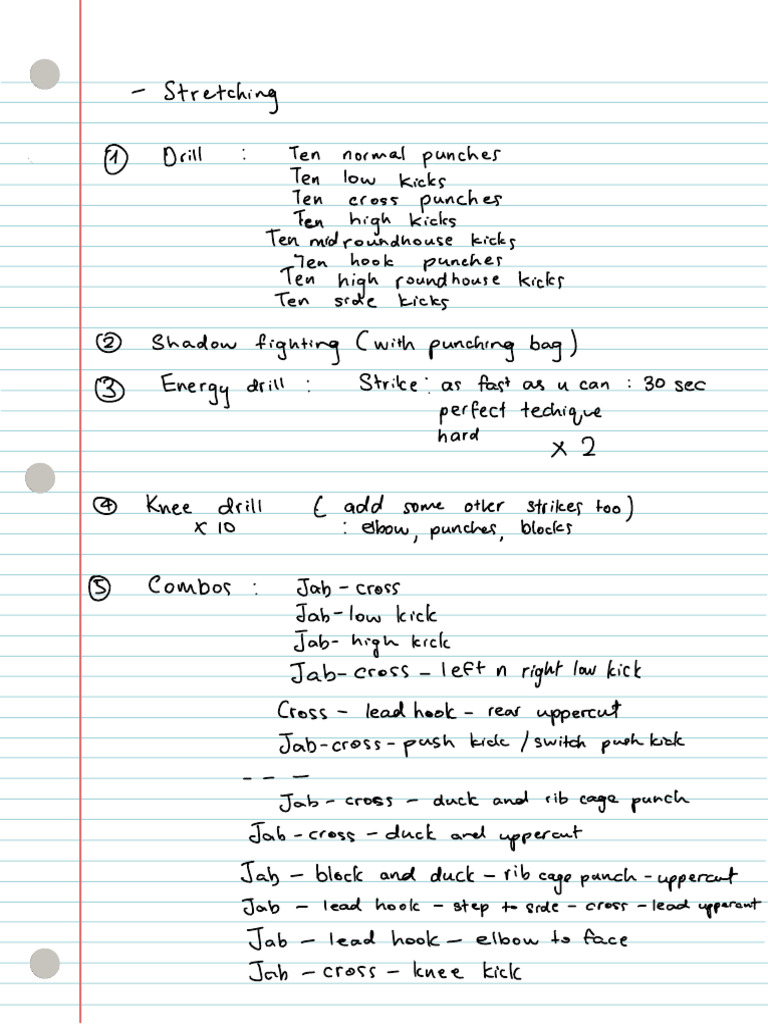 - Stretching
① Drill : Ten normal punches
Ten low kicks
Ten cross punches
Ten high kicks
Ten mid roundhouse kicks
Ten hook punches
Ten high roundhouse kicks
Ten side kicks
② Shadow fighting (with punching bag)
③ Energy drill : Strike: as fast as u can : 30 sec
perfect techique
hard
x 2
④ Knee drill ( add some other strikes too)
x 10 : elbow, punches, blocks
⑤ Combos : Jab - cross
Jab - low kick
Jab - high kick
Jab - cross - left n right low kick
Cross - lead hook - rear uppercut
Jab - cross - push kick / switch push kick
- - -
Jab - cross - duck and rib cage punch
Jab - cross - duck and uppercut
Jab - block and duck - rib cage punch - uppercut
Jab - lead hook - step to side - cross - lead uppercut
Jab - lead hook - elbow to face
Jab - cross - knee kick